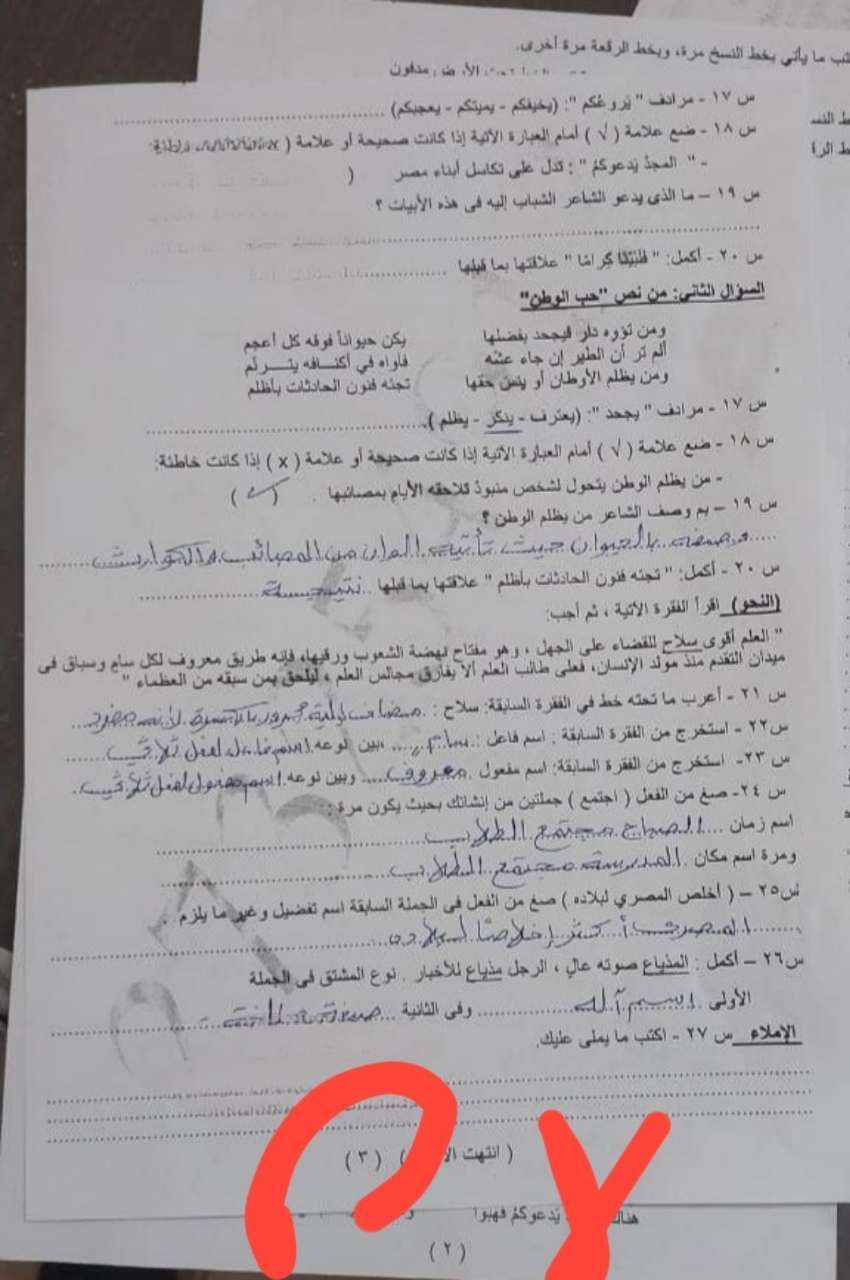 تب ما يأتي بخط النسخ مرة، وبخط الرقعة مرة أخرى.
الأرض مدافون
س ١٧ - مرادف " يَروعُكم ": (يخيفكم - يميتكم - يعجبكم)
س ١٨ - ضع علامة ( √ ) أمام العبارة الآتية إذا كانت صحيحة أو علامة ( x
- " المجدُ يَدعوكمُ " : تدل على تكاسل أبناء مصر ( 
س ١٩ – ما الذى يدعو الشاعر الشباب إليه فى هذه الأبيات ؟
س ٢٠ - أكمل: " كِرامًا " علاقتها بما قبلها
السؤال الثاني: من نص "حب الوطن"
ومن تؤوه دار فيجحد بفضلها يكن حيواناً فوقه كل أعجم
ألم تر أن الطير إن جاء عشه فآواه في أكنافه يترنم
ومن يظلم الأوطان أو ينس حقها تجئه فنون الحادثات بأظلم
س ١٧ - مرادف " يجحد ": (يعترف - ينكر - يظلم ).
س ١٨ - ضع علامة ( √ ) أمام العبارة الآتية إذا كانت صحيحة أو علامة ( x ) إذا كانت خاطئة:
- من يظلم الوطن يتحول لشخص منبوذ تلاحقه الأيام بمصائبها . ( √ )
س ١٩ – بم وصف الشاعر من يظلم الوطن ؟
وصفه بالحيوان حيث تأتيه الوان من المصائب والكوارث
س ٢٠ - أكمل: " تجئه فنون الحادثات بأظلم " علاقتها بما قبلها نتيجة
(النحو) اقرأ الفقرة الآتية ، ثم أجب:
" العلم أقوى سلاح للقضاء على الجهل ، وهو مفتاح لنهضة الشعوب ورقيها، فإنه طريق معروف لكل سامٍ وسباق فى
ميدان التقدم منذ مولد الإنسان، فعلى طالب العلم ألا يفارق مجالس العلم ، ليلحق بمن سبقه من العظماء "
س ٢١ - أعرب ما تحته خط في الفقرة السابقة: سلاح : مضاف إليه مجرور بالكسرة لانه مفرد
س٢٢ - استخرج من الفقرة السابقة : اسم فاعل : سامٍ ، بين نوعه اسم فاعل لفعل ثلاثي
س ٢٣- استخرج من الفقرة السابقة: اسم مفعول معروف وبين نوعه اسم مفعول لفعل ثلاثي
س ٢٤- صغ من الفعل ( اجتمع ) جملتين من إنشائك بحيث يكون مرة :
اسم زمان الصباح مجتمع الطلاب
ومرة اسم مكان المدرسة مجتمع الطلاب
س٢٥ – ( أخلص المصري لبلاده ) صغ من الفعل فى الجملة السابقة اسم تفضيل وغير ما يلزم .
المصرى أكثر إخلاصًا لبلاده
س٢٦ – أكمل : المذياع صوته عالٍ ، الرجل مذياع للأخبار . نوع المشتق فى الجملة
الأولى اسم آله وفى الثانية صيغة مبالغة
الإملاء س ٢٧ - اكتب ما يملى عليك.
( انتهت ( ٣ )
يَدعوكمُ فهبوا
( ٢ )